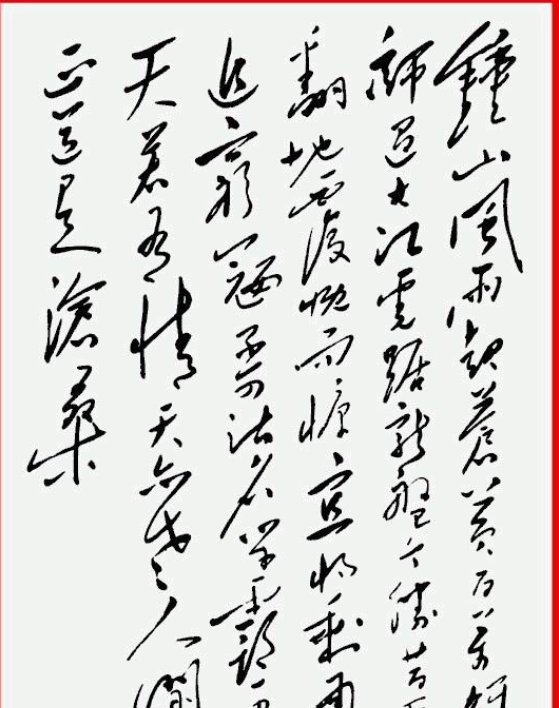 鍾山風雨起蒼黃百萬雄
師過大江虎踞龍盤今勝昔天
翻地覆慨而慷宜將剩勇
追窮寇不可沽名學霸王
天若有情天亦老人間
正道是滄桑